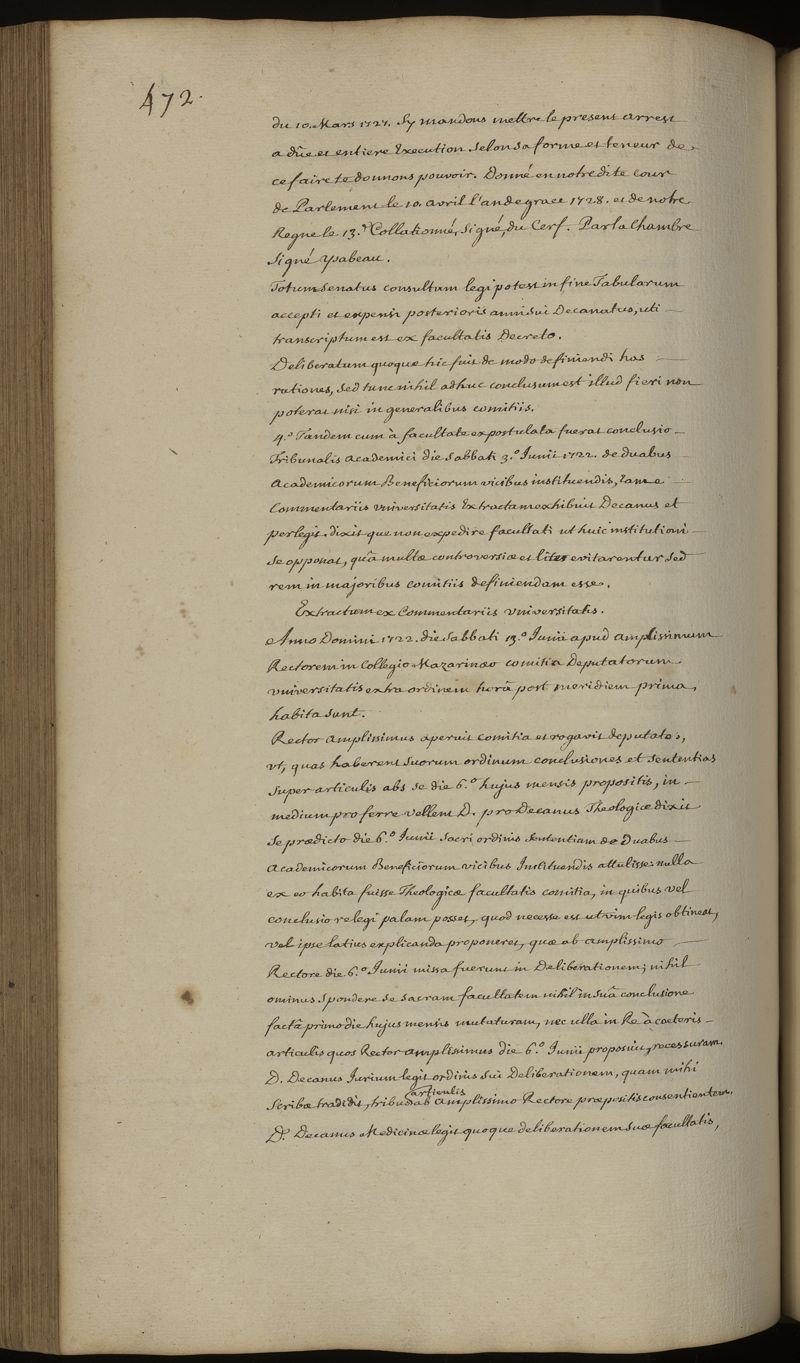 472.
du 10. Mars 1727. Sy mandons mettre le present arrest
a dûe et entiere Execution selon sa forme et teneur de
ce faire te donnons pouvoir. Donné en notredite cour
de Parlement le 10. avril l'an de grace 1728. et de notre
Regne le 13.e Collationné, signé, du Cerf. Par la Chambre
Signé ysabeau.
Totum Senatus consultum legi potest in fine Tabularum
accepti et expensi posterioris anni sui Decanatus, uti
transcriptum est ex facultatis Decreto.
Deliberatum quoque hic fuit de modo definiendi has
rationes, sed tunc nihil adhuc conclusum est illud fieri non
poterat nisi in generalibus comitiis.
4.o Tandem cum à facultate expostulata fuerat conclusio
Tribunalis academici die Sabbati 3.o Junii 1722. de duabus
academicorum Beneficiorum vicibus instituendis, eam e
Commentariis universitatis Extractam exhibuit Decanus et
perlegit. dixit que non expedire facultati ut huic institutioni
se opponat, quâ multæ controversiæ et lites evitarentur sed
rem in majoribus comitiis definiendam esse.
Extractum ex Commentariis universitatis.
Anno Domini 1722. die Sabbati 13.o Junii apud amplissimum
Rectorem in Collegio Mazarinæo comitia Deputatorum
universitatis extra ordinem horâ post meridiem primâ,
habita sunt.
Rector amplissimus aperuit comitia et rogavit deputatos,
ut, quas haberent suorum ordinum conclusiones et sententias
super articulis abs se die 6.o hujus mensis propositis, in
medium proferre vellent D. pro Decanus Theologiæ dixit
se prædicto die 6.o Junii sacri ordinis sententiam de Duabus
academicorum Beneficiorum vicibus Instituendis attulisse: nulla
ex eo habita fuisse Theologicæ facultatis comitia, in quibus vel
conclusio relegi palam posset, quod necesse est ut vim legis obtineat,
vel ipse latius explicanda proponeret, quæ ab amplissimo
Rectore die 6.o Junii missa fuerunt in Deliberationem; nihil
ominus spondere se sacram facultatem nihil in suâ conclusione
factâ primo die hujus mensis mutaturam, nec ulla in Re à cæteris
articulis quos Rector amplissimus die 6.o Junii proposuit, recessuram.
D. Decanus Iurium legit ordinis sui Deliberationem, quam mihi
Scribæ tradidit, tribus articulis ab amplissimo Rectore præpositis consentientem.
D. Decanus Medicinæ legit quoque deliberationem suæ facultatis,